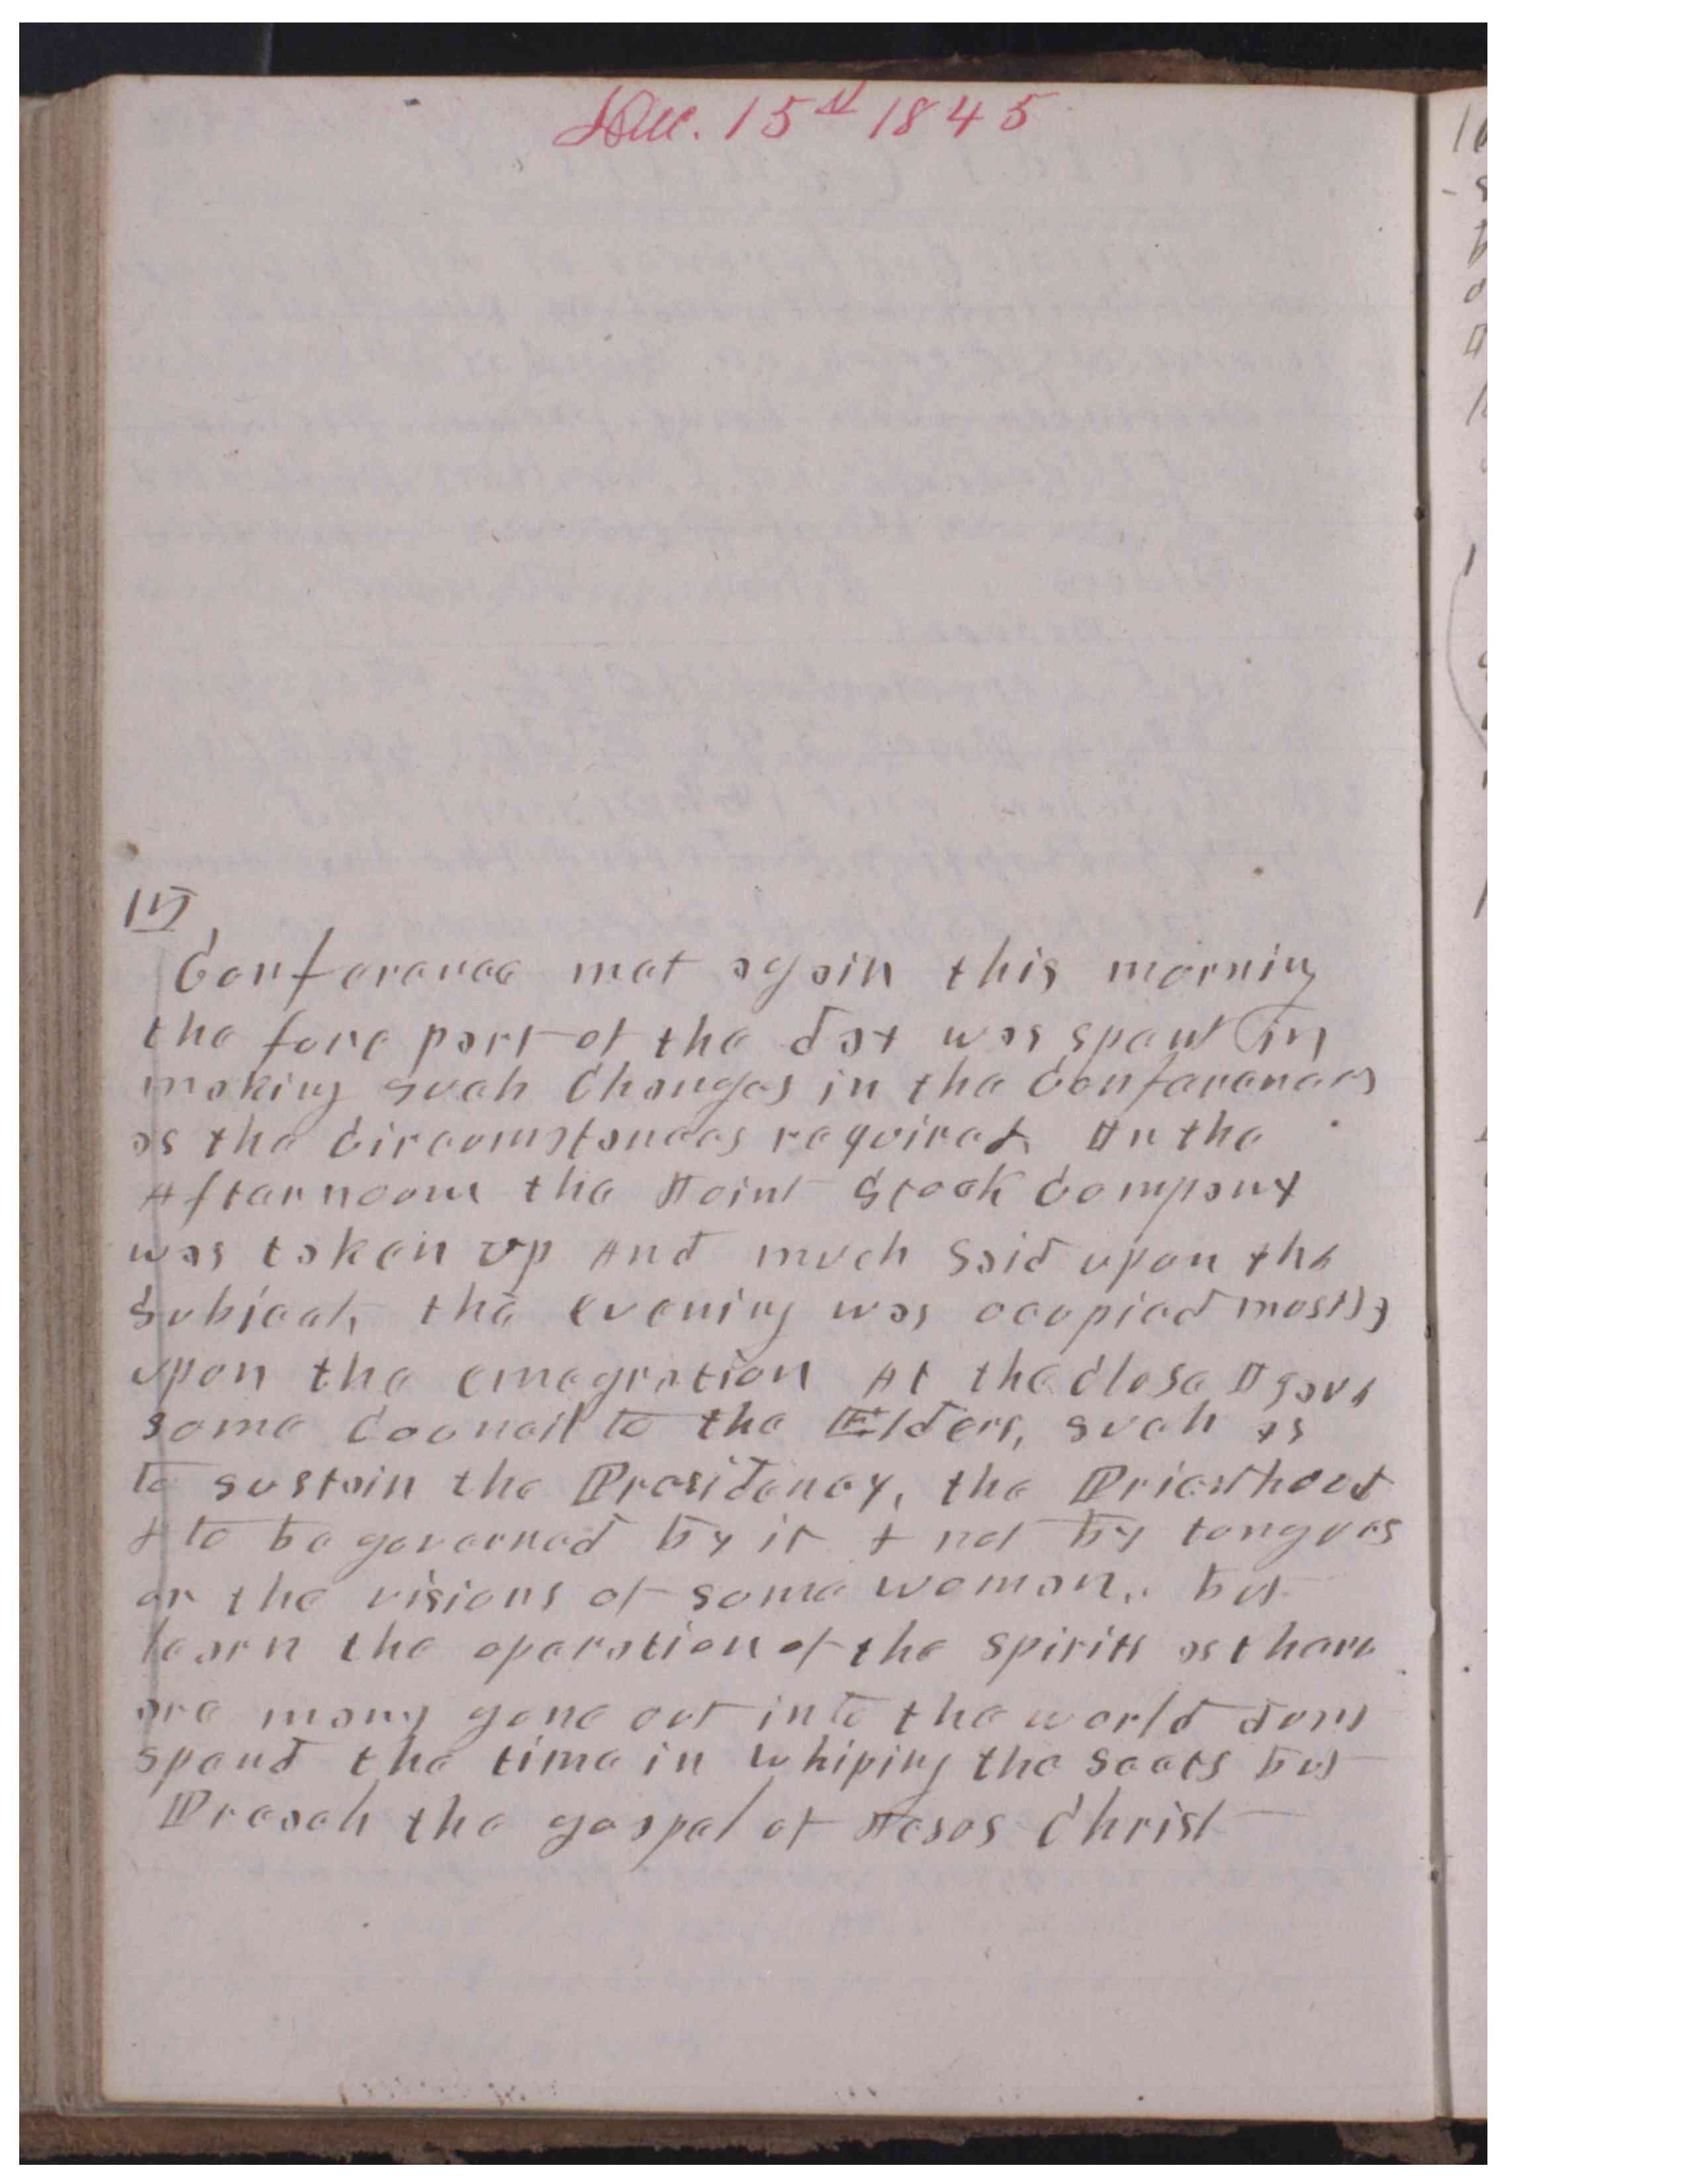 Dec. 15st 1845
15
Conference met again this morning
the fore part of the day was spent in
making such Changes in the Conferences
as the Circumstances required. In the
Afternoon the Joint Stock Company
was taken up And much said upon the
Subject, the evening was occupied mostly
upon the emegration At the close I gave
some Councail to the Elders, such as
to sustain the Presidency, the Priesthood
& to be governed by it & not by tongues
or the visions of some woman,. but
learn the operation of the spirits as there
are many gone out into the world dont
spend the time in whiping the Sects but
Preach the gospel of Jesus Christ